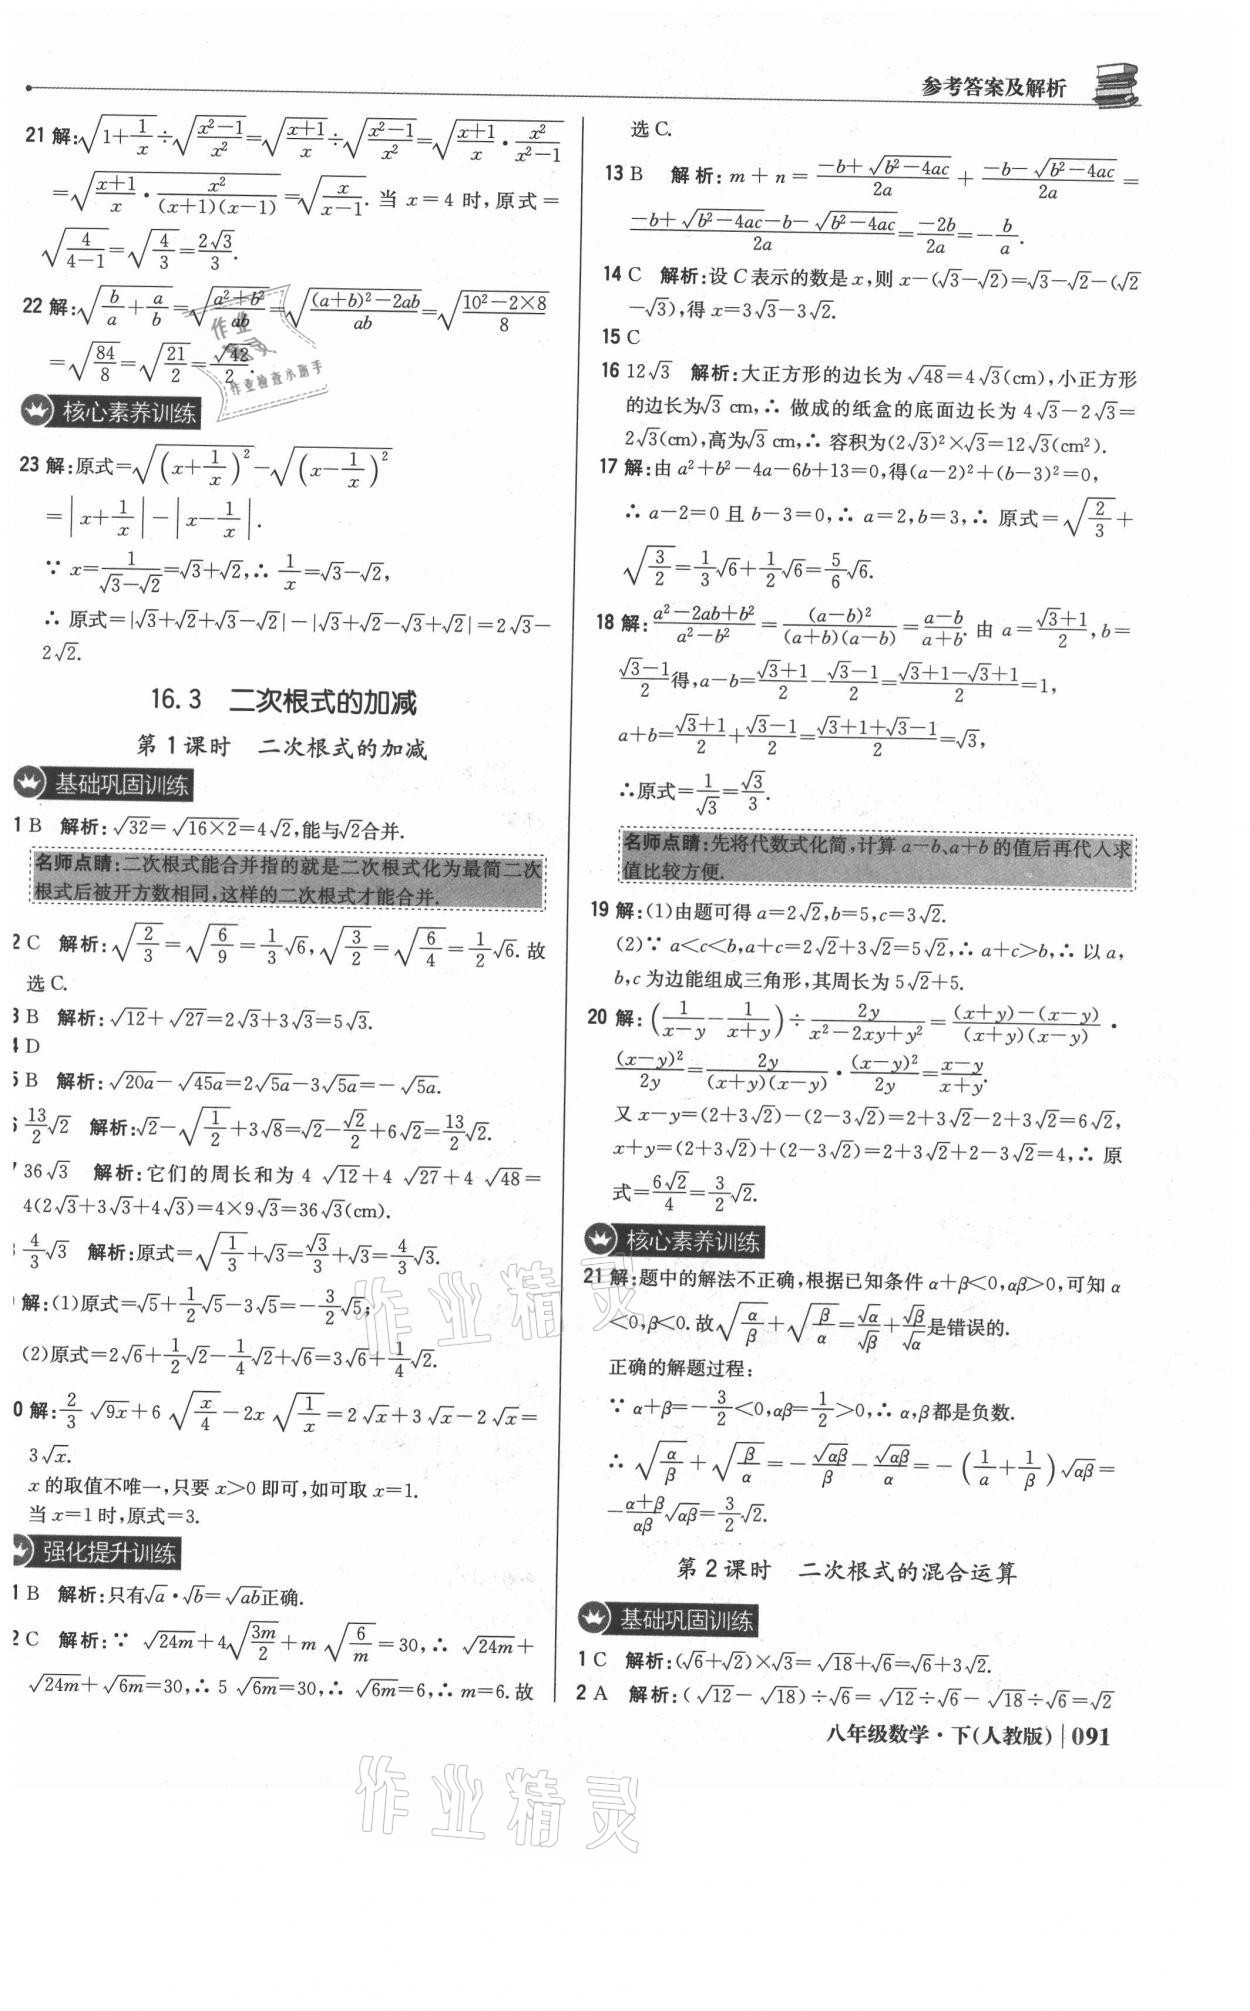 参考答案及解析
21 解:√(1+1/x)÷√((x²−1)/x²)=√((x+1)/x)÷√((x²−1)/x²)=√((x+1)/x·x²/(x²−1))
=√((x+1)/x·x²/((x+1)(x−1)))=√(x/(x−1)). 当 x=4 时,原式=
√(4/(4−1))=√(4/3)=2√3/3.
22 解:√(b/a+a/b)=√((a²+b²)/ab)=√(((a+b)²−2ab)/ab)=√((10²−2×8)/8)
=√(84/8)=√(21/2)=√42/2.
核心素养训练
23 解:原式=√((x+1/x)²)−√((x−1/x)²)
=|x+1/x|−|x−1/x|.
∵ x=1/(√3−√2)=√3+√2,∴ 1/x=√3−√2,
∴ 原式=|√3+√2+√3−√2|−|√3+√2−√3+√2|=2√3−
2√2.
16.3 二次根式的加减
第1课时 二次根式的加减
基础巩固训练
1 B 解析:√32=√(16×2)=4√2,能与√2合并.
名师点睛:二次根式能合并指的就是二次根式化为最简二次
根式后被开方数相同,这样的二次根式才能合并.
2 C 解析:√(2/3)=√(6/9)=1/3√6,√(3/2)=√(6/4)=1/2√6.故
选C.
3 B 解析:√12+√27=2√3+3√3=5√3.
4 D
5 B 解析:√20a−√45a=2√5a−3√5a=−√5a.
6 13/2√2 解析:√2−√(1/2)+3√8=√2−√2/2+6√2=13/2√2.
7 36√3 解析:它们的周长和为 4√12+4√27+4√48=
4(2√3+3√3+4√3)=4×9√3=36√3(cm).
4/3√3 解析:原式=√(1/3)+√3=√3/3+√3=4/3√3.
解:(1)原式=√5+1/2√5−3√5=−3/2√5;
(2)原式=2√6+1/2√2−1/4√2+√6=3√6+1/4√2.
0 解:2/3√9x+6√(x/4)−2x√(1/x)=2√x+3√x−2√x=
3√x.
x 的取值不唯一,只要 x>0 即可,如可取 x=1.
当 x=1 时,原式=3.
强化提升训练
1 B 解析:只有√a·√b=√ab正确.
2 C 解析:∵ √24m+4√(3m/2)+m√(6/m)=30,∴ √24m+
√24m+√6m=30,∴ 5√6m=30,∴ √6m=6,∴ m=6.故
选C.
13 B 解析:m+n=(−b+√(b²−4ac))/2a+(−b−√(b²−4ac))/2a=
(−b+√(b²−4ac)−b−√(b²−4ac))/2a=−2b/2a=−b/a.
14 C 解析:设C表示的数是x,则x−(√3−√2)=√3−√2−(√2
−√3),得x=3√3−3√2.
15 C
16 12√3 解析:大正方形的边长为√48=4√3(cm),小正方形
的边长为√3 cm,∴ 做成的纸盒的底面边长为4√3−2√3=
2√3(cm),高为√3 cm,∴ 容积为(2√3)²×√3=12√3(cm²).
17 解:由 a²+b²−4a−6b+13=0,得(a−2)²+(b−3)²=0,
∴ a−2=0 且 b−3=0,∴ a=2,b=3,∴ 原式=√(2/3)+
√(3/2)=1/3√6+1/2√6=5/6√6.
18 解:(a²−2ab+b²)/(a²−b²)=(a−b)²/((a+b)(a−b))=(a−b)/(a+b).由 a=(√3+1)/2,b=
(√3−1)/2得,a−b=(√3+1)/2−(√3−1)/2=(√3+1−√3+1)/2=1,
a+b=(√3+1)/2+(√3−1)/2=(√3+1+√3−1)/2=√3,
∴原式=1/√3=√3/3.
名师点睛:先将代数式化简,计算 a−b、a+b 的值后再代入求
值比较方便.
19 解:(1)由题可得 a=2√2,b=5,c=3√2.
(2)∵ a<c<b,a+c=2√2+3√2=5√2,∴ a+c>b,∴ 以 a,
b,c 为边能组成三角形,其周长为 5√2+5.
20 解:(1/(x−y)−1/(x+y))÷2y/(x²−2xy+y²)=((x+y)−(x−y))/((x+y)(x−y))·
(x−y)²/2y=2y/((x+y)(x−y))·(x−y)²/2y=(x−y)/(x+y).
又 x−y=(2+3√2)−(2−3√2)=2+3√2−2+3√2=6√2,
x+y=(2+3√2)+(2−3√2)=2+3√2+2−3√2=4,∴ 原
式=6√2/4=3/2√2.
核心素养训练
21 解:题中的解法不正确,根据已知条件 α+β<0,αβ>0,可知 α
<0,β<0.故√(α/β)+√(β/α)=√α/√β+√β/√α是错误的.
正确的解题过程:
∵ α+β=−3/2<0,αβ=1/2>0,∴ α,β都是负数.
∴ √(α/β)+√(β/α)=−√αβ/β−√αβ/α=−(1/a+1/β)√αβ=
−(α+β)/αβ√αβ=3/2√2.
第2课时 二次根式的混合运算
基础巩固训练
1 C 解析:(√6+√2)×√3=√18+√6=√6+3√2.
2 A 解析:(√12−√18)÷√6=√12÷√6−√18÷√6=√2
八年级数学·下(人教版)|091
作业精灵
作业精灵
作业精灵
作业检查小助手